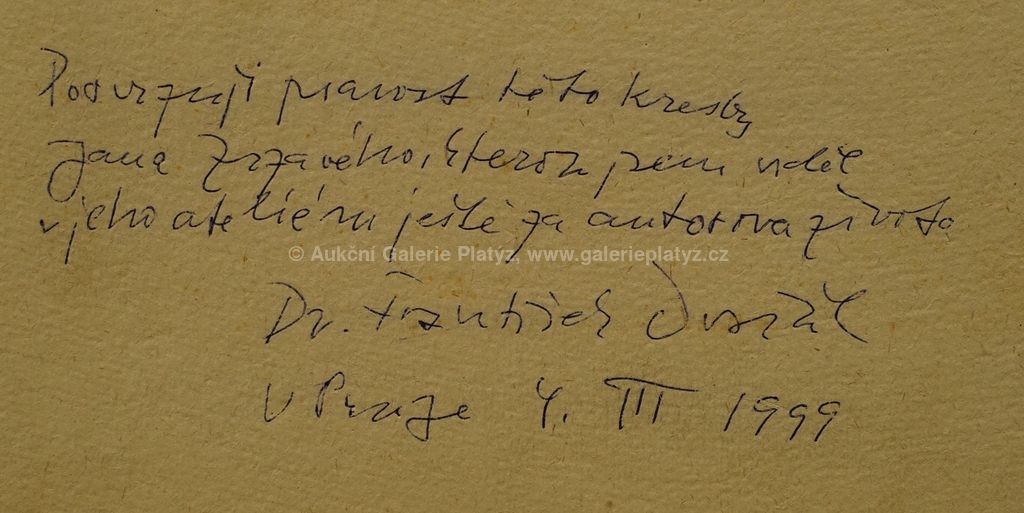 Potvrzuji pravost této kresby
Jana Zrzavého, kterou jsem viděl
v jeho ateliéru ještě za autorova života
© Aukční Galerie Platýz, www.galerieplatyz.cz
Dr. František Dvořák
V Praze 4. III 1999